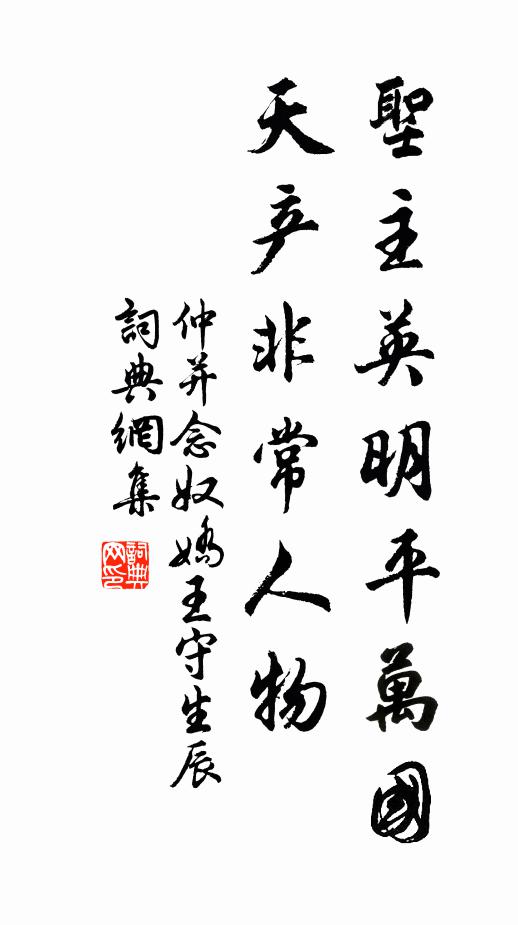 聖主英明平萬國
天产非常人物
仲并念奴嬌王守生辰
詞典網集
詞典网印